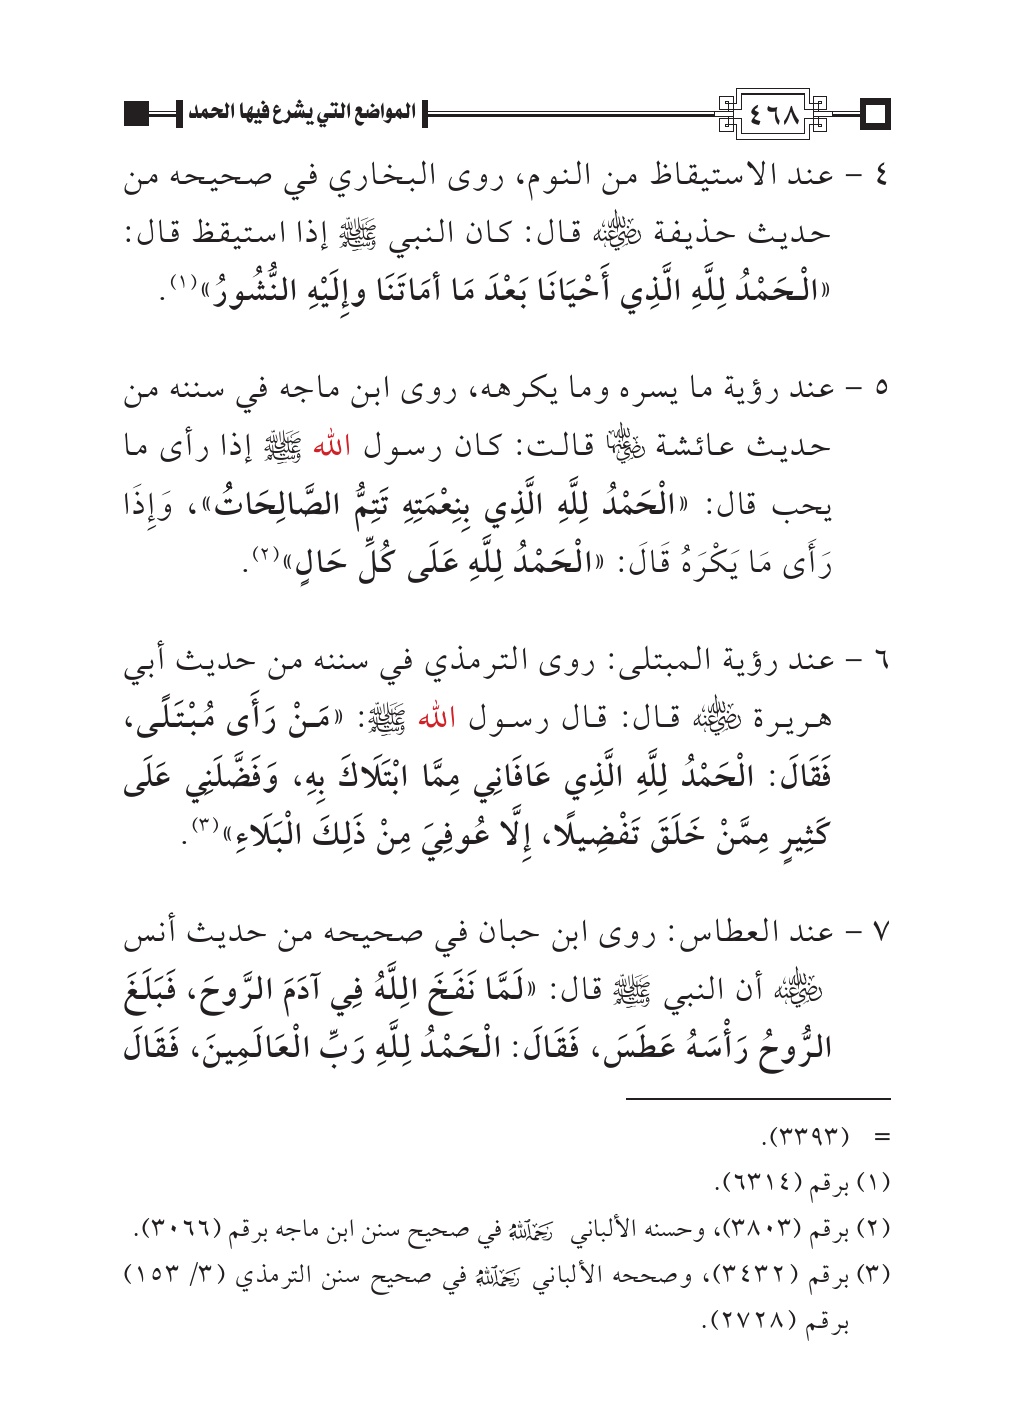 ٤٦٨ المواضع التي يشرع فيها الحمد
٤ – عند الاستيقاظ من النوم، روى البخاري في صحيحه من
حديث حذيفة رضي الله عنه قال: كان النبي ﷺ إذا استيقظ قال:
«الْحَمْدُ لِلَّهِ الَّذِي أَحْيَانَا بَعْدَ مَا أمَاتَنَا وإِلَيْهِ النُّشُورُ»(١).
٥ – عند رؤية ما يسره وما يكرهه، روى ابن ماجه في سننه من
حديث عائشة رضي الله عنها قالت: كان رسول الله ﷺ إذا رأى ما
يحب قال: «الْحَمْدُ لِلَّهِ الَّذِي بِنِعْمَتِهِ تَتِمُّ الصَّالِحَاتُ»، وَإِذَا
رَأَى مَا يَكْرَهُ قَالَ: «الْحَمْدُ لِلَّهِ عَلَى كُلِّ حَالٍ»(٢).
٦ – عند رؤية المبتلى: روى الترمذي في سننه من حديث أبي
هريرة رضي الله عنه قال: قال رسول الله ﷺ: «مَنْ رَأَى مُبْتَلًى،
فَقَالَ: الْحَمْدُ لِلَّهِ الَّذِي عَافَانِي مِمَّا ابْتَلَاكَ بِهِ، وَفَضَّلَنِي عَلَى
كَثِيرٍ مِمَّنْ خَلَقَ تَفْضِيلًا، إِلَّا عُوفِيَ مِنْ ذَلِكَ الْبَلَاءِ»(٣).
٧ – عند العطاس: روى ابن حبان في صحيحه من حديث أنس
رضي الله عنه أن النبي ﷺ قال: «لَمَّا نَفَخَ اللَّهُ فِي آدَمَ الرَّوحَ، فَبَلَغَ
الرُّوحُ رَأْسَهُ عَطَسَ، فَقَالَ: الْحَمْدُ لِلَّهِ رَبِّ الْعَالَمِينَ، فَقَالَ
= (٣٣٩٣).
(١) برقم (٦٣١٤).
(٢) برقم (٣٨٠٣)، وحسنه الألباني رحمه الله في صحيح سنن ابن ماجه برقم (٣٠٦٦).
(٣) برقم (٣٤٣٢)، وصححه الألباني رحمه الله في صحيح سنن الترمذي (٣/ ١٥٣)
برقم (٢٧٢٨).